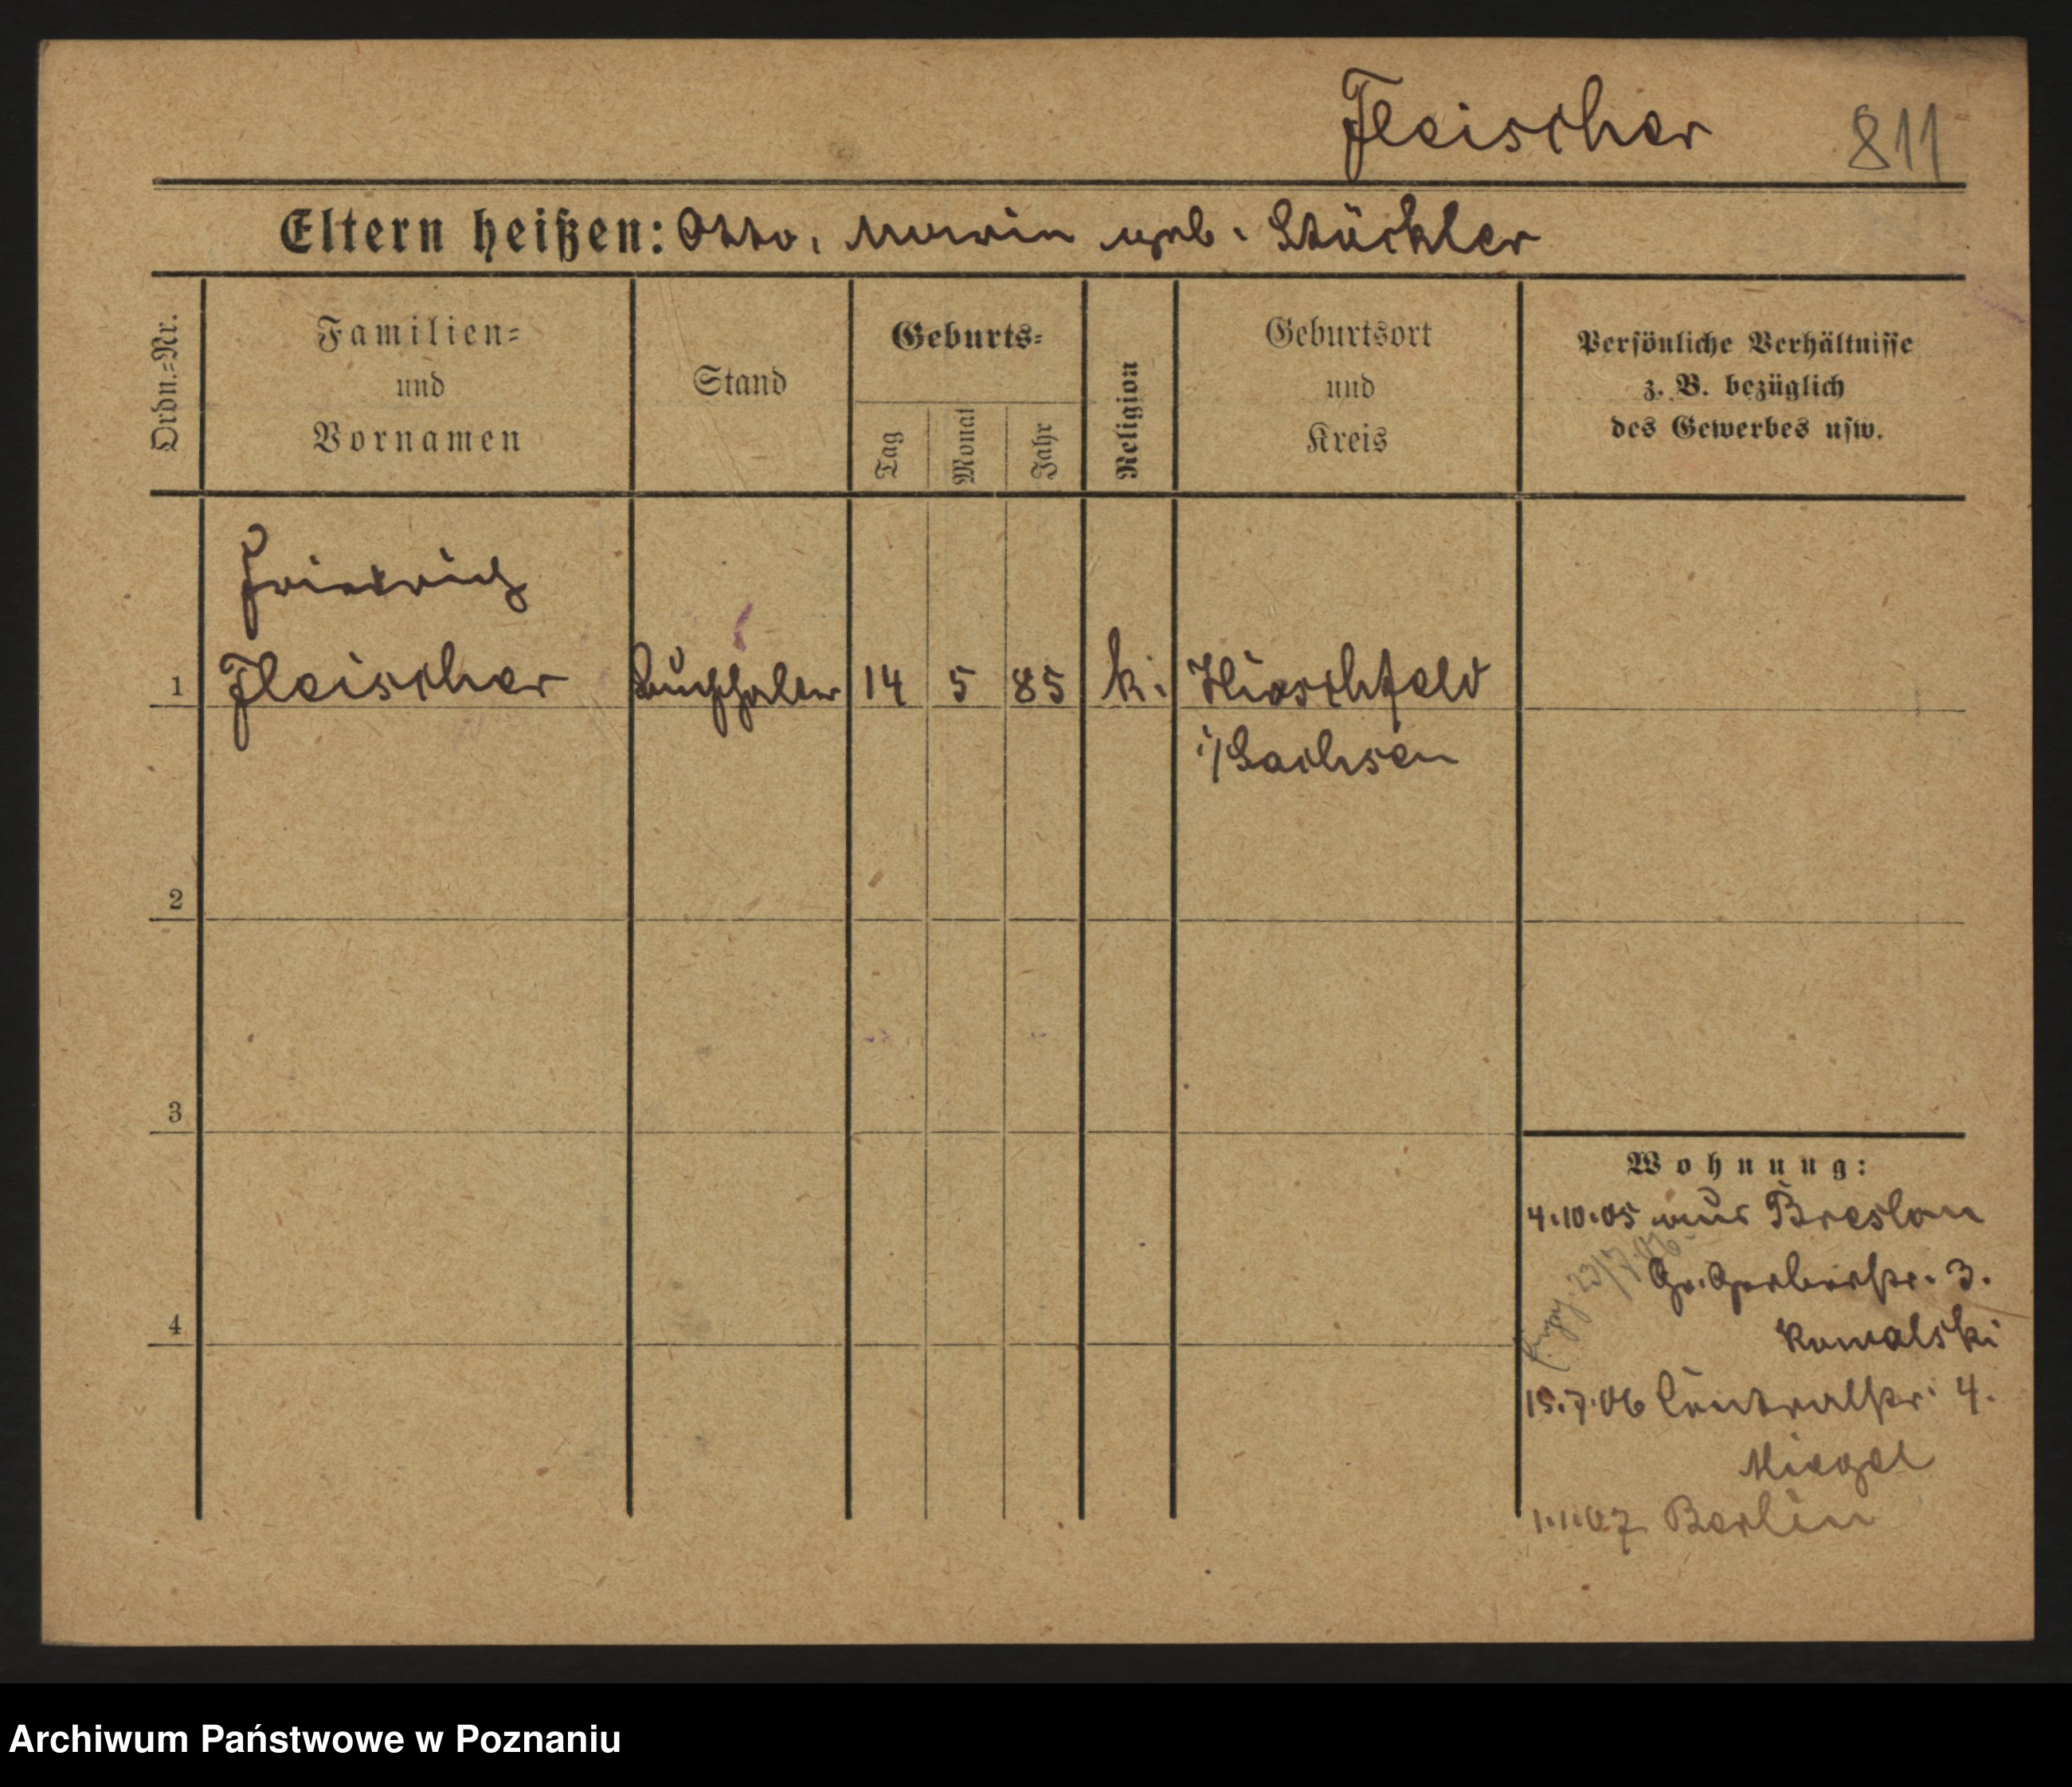 Fleischer 811
Eltern heißen: Otto, Marie geb. Stöckler
Ordn.=Nr.
Familien=
und
Vornamen
Stand
Geburts=
Tag
Monat
Jahr
Religion
Geburtsort
und
Kreis
Persönliche Verhältnisse
z. B. bezüglich
des Gewerbes usw.
Friedrich
1 Fleischer Buchhalter 14 5 85 k. Hirschfeld
i/Sachsen
2
3
4
Wohnung:
4.10.05 aus Breslau
23/7.06.
Gr. Gerberstr. 3.
Kowalski
15.7.06 Centralstr. 4.
Miegel
1.1.07 Berlin
Archiwum Państwowe w Poznaniu